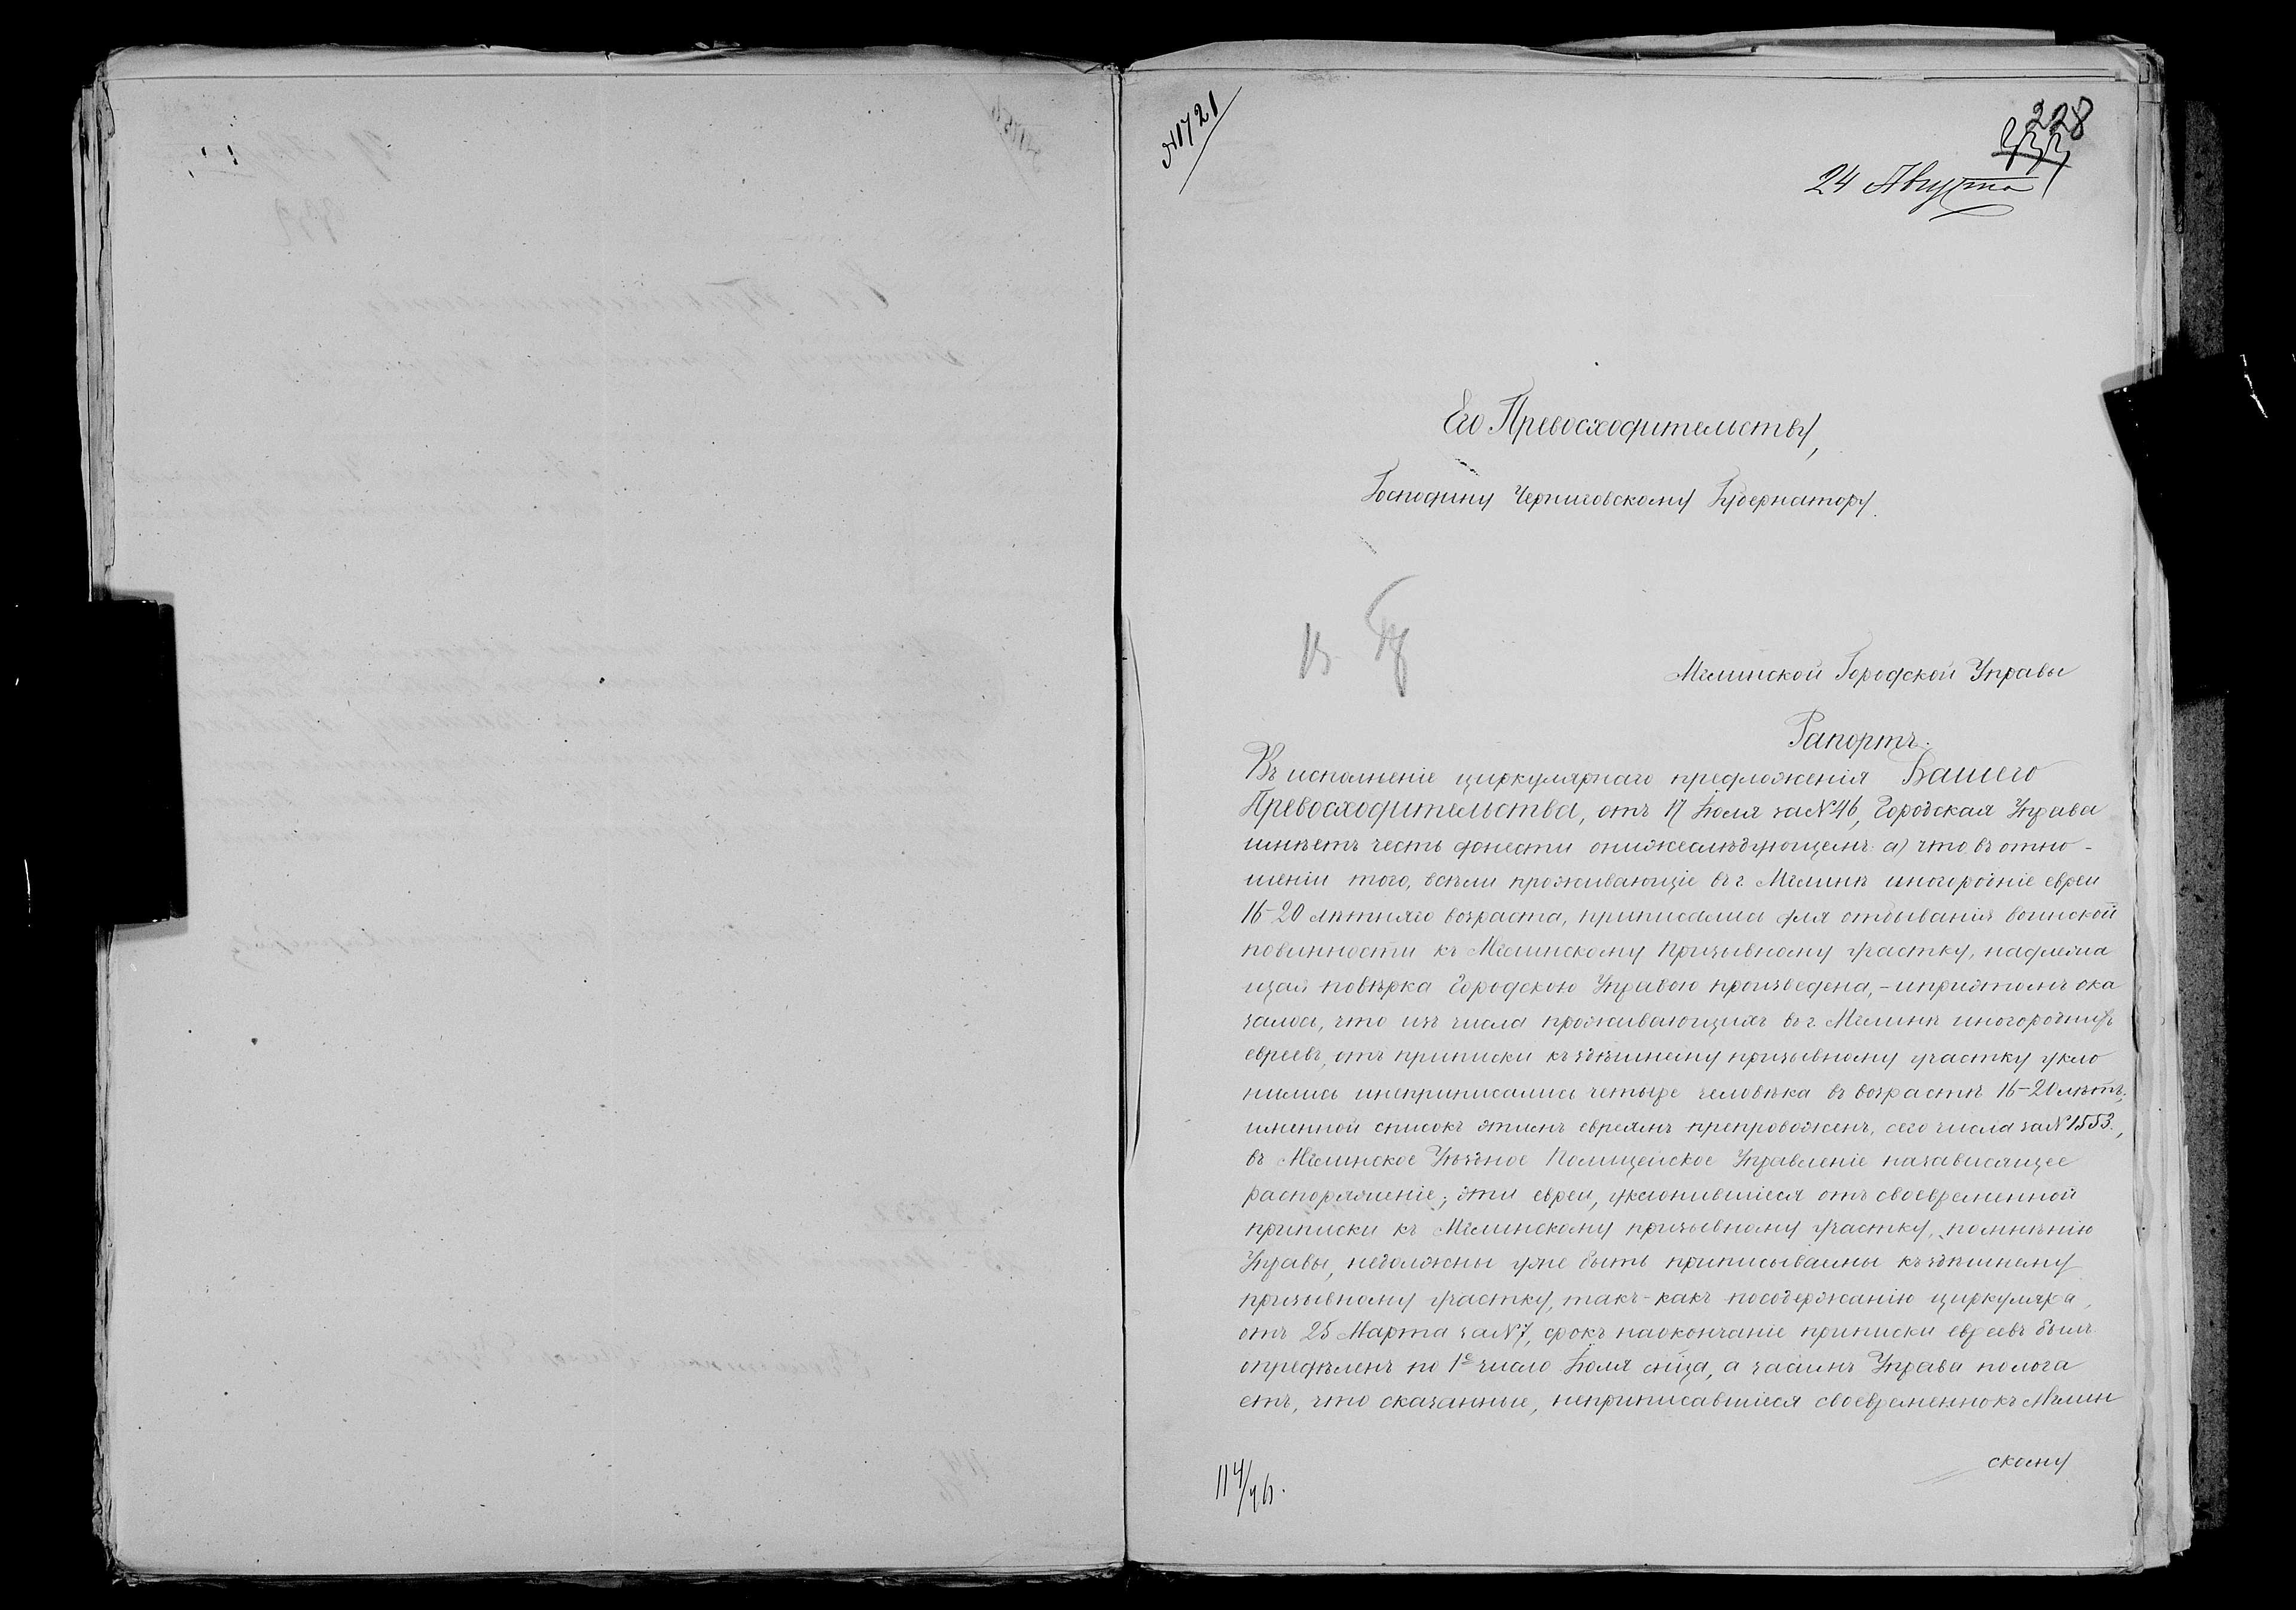 №1721
228
24 Августа
Его Превосходительству,
Господину Черниговскому Губернатору.
Мглинской Городской Управы
Рапортъ.
Въ исполненіе циркулярнаго предложенія Вашего
Превосходительства, отъ 17 Іюля за №46, Городская Управа
имѣетъ честь донести онижеслѣдующемъ: а) что въ отно-
шеніи того, всѣли проживающіе въ г. Мглинѣ иногородніе евреи
16-20 лѣтняго возраста, приписались для отбыванія воинской
повинности къ Мглинскому Призывному участку, надлежа
щая повѣрка Городскою Управою произведена, - иприэтомъ ока
залось, что изъ числа проживающихъ въ г. Мглинѣ иногороднихъ
евреевъ, отъ приписки къ здѣшнему призывному участку укло
нились инеприписались четыре человѣка въ возрастѣ 16-20 лѣтъ;
именной списокъ этимъ евреямъ препровожденъ, сего числа за №1553.,
въ Мглинское Уѣздное Полицейское Управленіе назависящее
распоряженіе; эти евреи, уклонившіеся отъ своевременной
приписки къ Мглинскому призывному участку, помнѣнію
Управы, недолжны уже быть приписываемы къ здѣшнему
призывному участку, такъ-какъ посодержанію циркуляра,
отъ 25 Марта за №7, срокъ наокончаніе приписки евреевъ былъ
опредѣленъ по 1е число Іюля м-ца, а засимъ Управа полога
етъ, что сказанные, неприписавшіеся своевременно къ Мглин
скому
114/46.